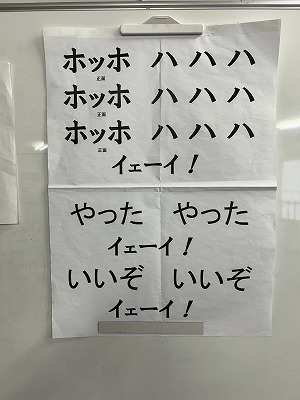 ホッホ ハハハ
正面
ホッホ ハハハ
正面
ホッホ ハハハ
正面
イェーイ！
やった やった
イェーイ！
いいぞ いいぞ
イェーイ！